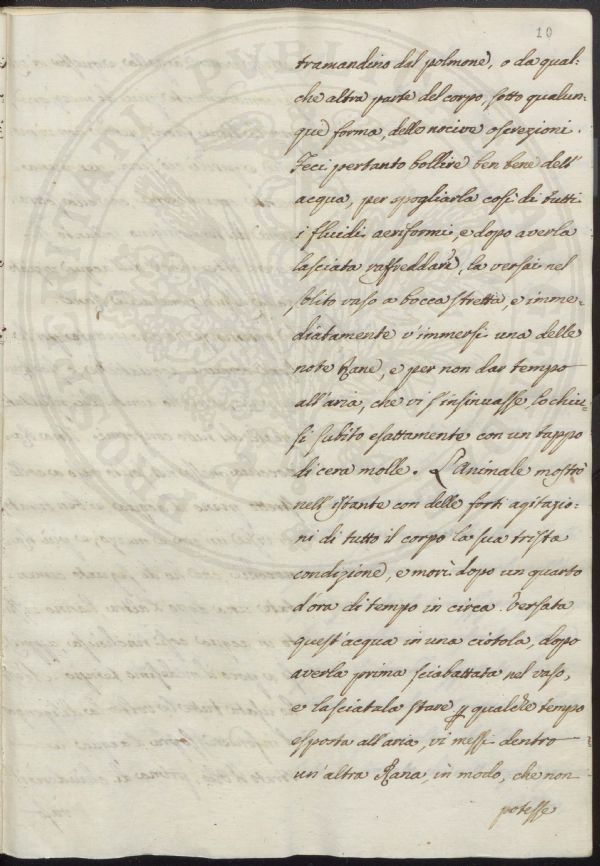 10
tramandino dal polmone, o da qual:
che altra parte del corpo, sotto qualun:
que forma, delle nocive escrezioni.
Feci pertanto bollire ben bene dell'
acqua, per spogliarla così di tutti
i fluidi aeriformi, e dopo averla
lasciata raffreddare, la versai nel
solito vaso a bocca stretta, e imme:
diatamente v'immersi una delle
note Rane, e per non dar tempo
all'aria, che vi s'insinuasse, lo chiu:
si subito esattamente con un tappo
di cera molle. L'Animale mostrò
nell'istante con delle forti agitazio:
ni di tutto il corpo la sua trista
condizione, e morì dopo un quarto
d'ora di tempo in circa. Versata
quest'acqua in una ciotola, dopo
averla prima sciabattata nel vaso,
e lasciatala stare p qualche tempo
esposta all'aria, vi messi dentro
un'altra Rana, in modo, che non
potesse
PROSPERITATI PVBLICAE